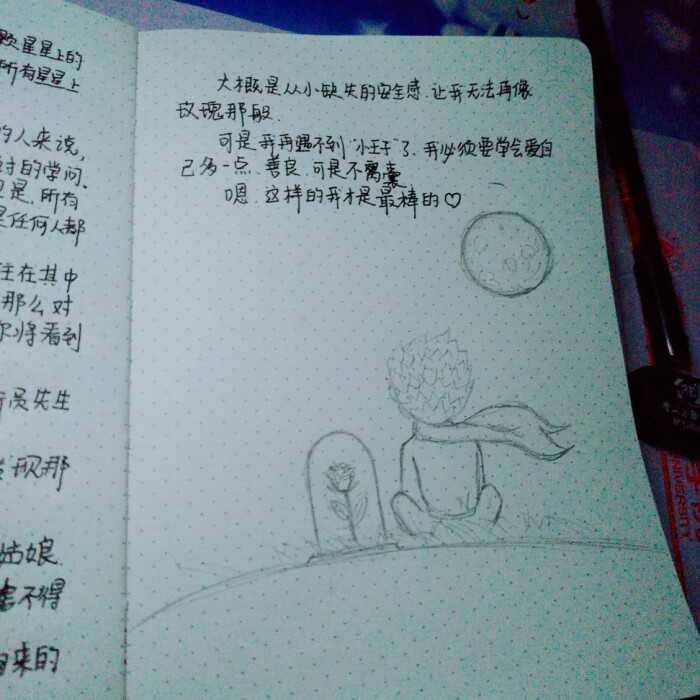 颗星星上的
所有星星上
的人来说,
对的学问.
但是,所有
是任何人都
住在其中
那么对
你将看到
行员先生
发现那
姑娘
害不得
来的
大概是从小缺失的安全感.让我无法再像
玫瑰那般.
可是我再遇不到“小王子”了.我必须要学会爱自
己多一点、善良.可是不离囊
嗯.这样的我才是最棒的♡
UNIVERSITY